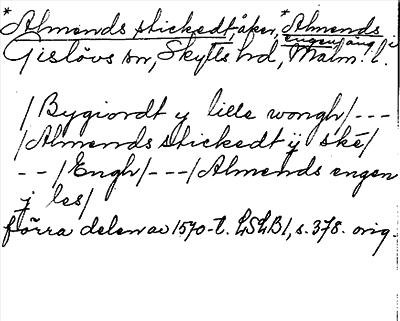 *Almends stickedt, åker, *Almends engen, äng i
Gislövs sn, Skytts hd, Malm. l.
/Bygiordt y lille wongh/---
/Almends stickedt ÿ ske/
--/Engh/---/Almends engen
j les/
förra delen av 1570-t. LSLB1, s. 378. orig.